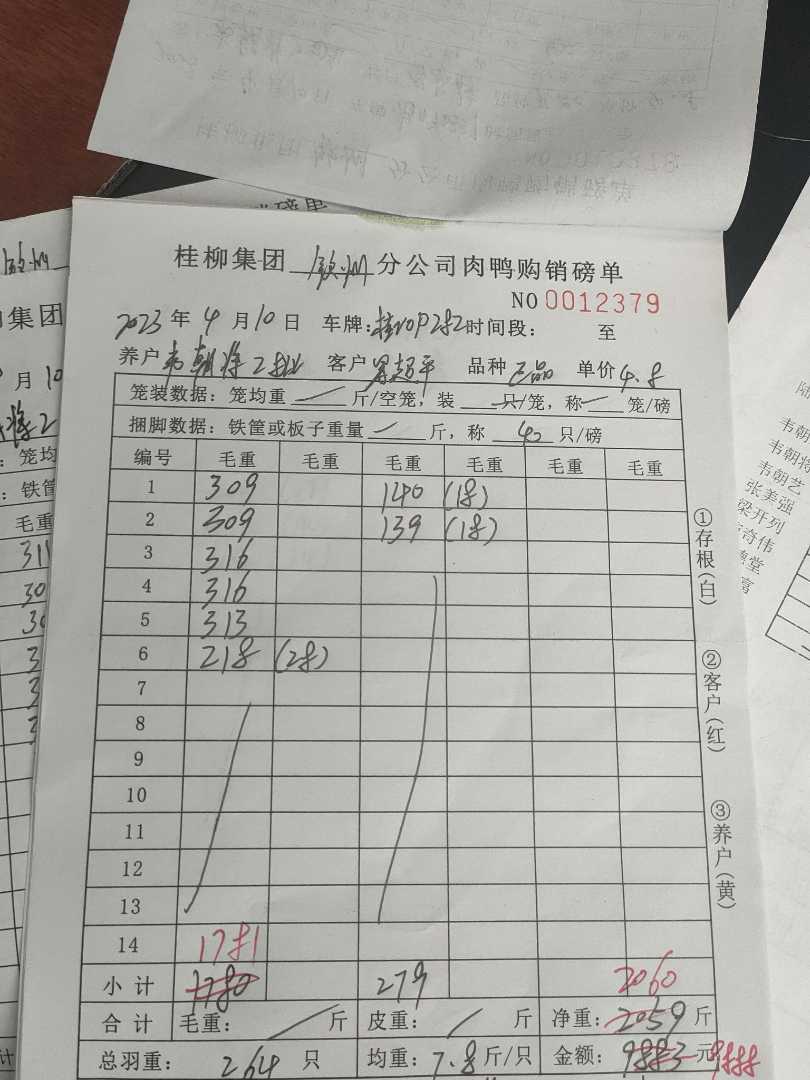 桂柳集团 钦州 分公司肉鸭购销磅单
NO 0012379
2023 年 4 月 10 日 车牌: 时间段: 至
养户 韦朝将2批 客户 超平 品种 正品 单价 4.8
笼装数据: 笼均重 / 斤/空笼, 装 / 只/笼, 称 / 笼/磅
捆脚数据: 铁筐或板子重量 / 斤, 称 40 只/磅
编号 毛重 毛重 毛重 毛重 毛重 毛重
1 309 140 (18)
2 309 139 (18)
3 316
4 316
5 313
6 218 (28)
7
8
9
10
11
12
13
14 1781
小计 1780 279 2060
合计 毛重: / 斤 皮重: / 斤 净重: 2059 斤
总羽重: 264 只 均重: 7.8 斤/只 金额: 9883 元 9888
①存根(白)
②客户(红)
③养户(黄)
集团
月 10
笼均
铁筐
毛重
311
韦朝
韦朝将
韦朝艺
张美强
梁开列
奇伟
德堂
富